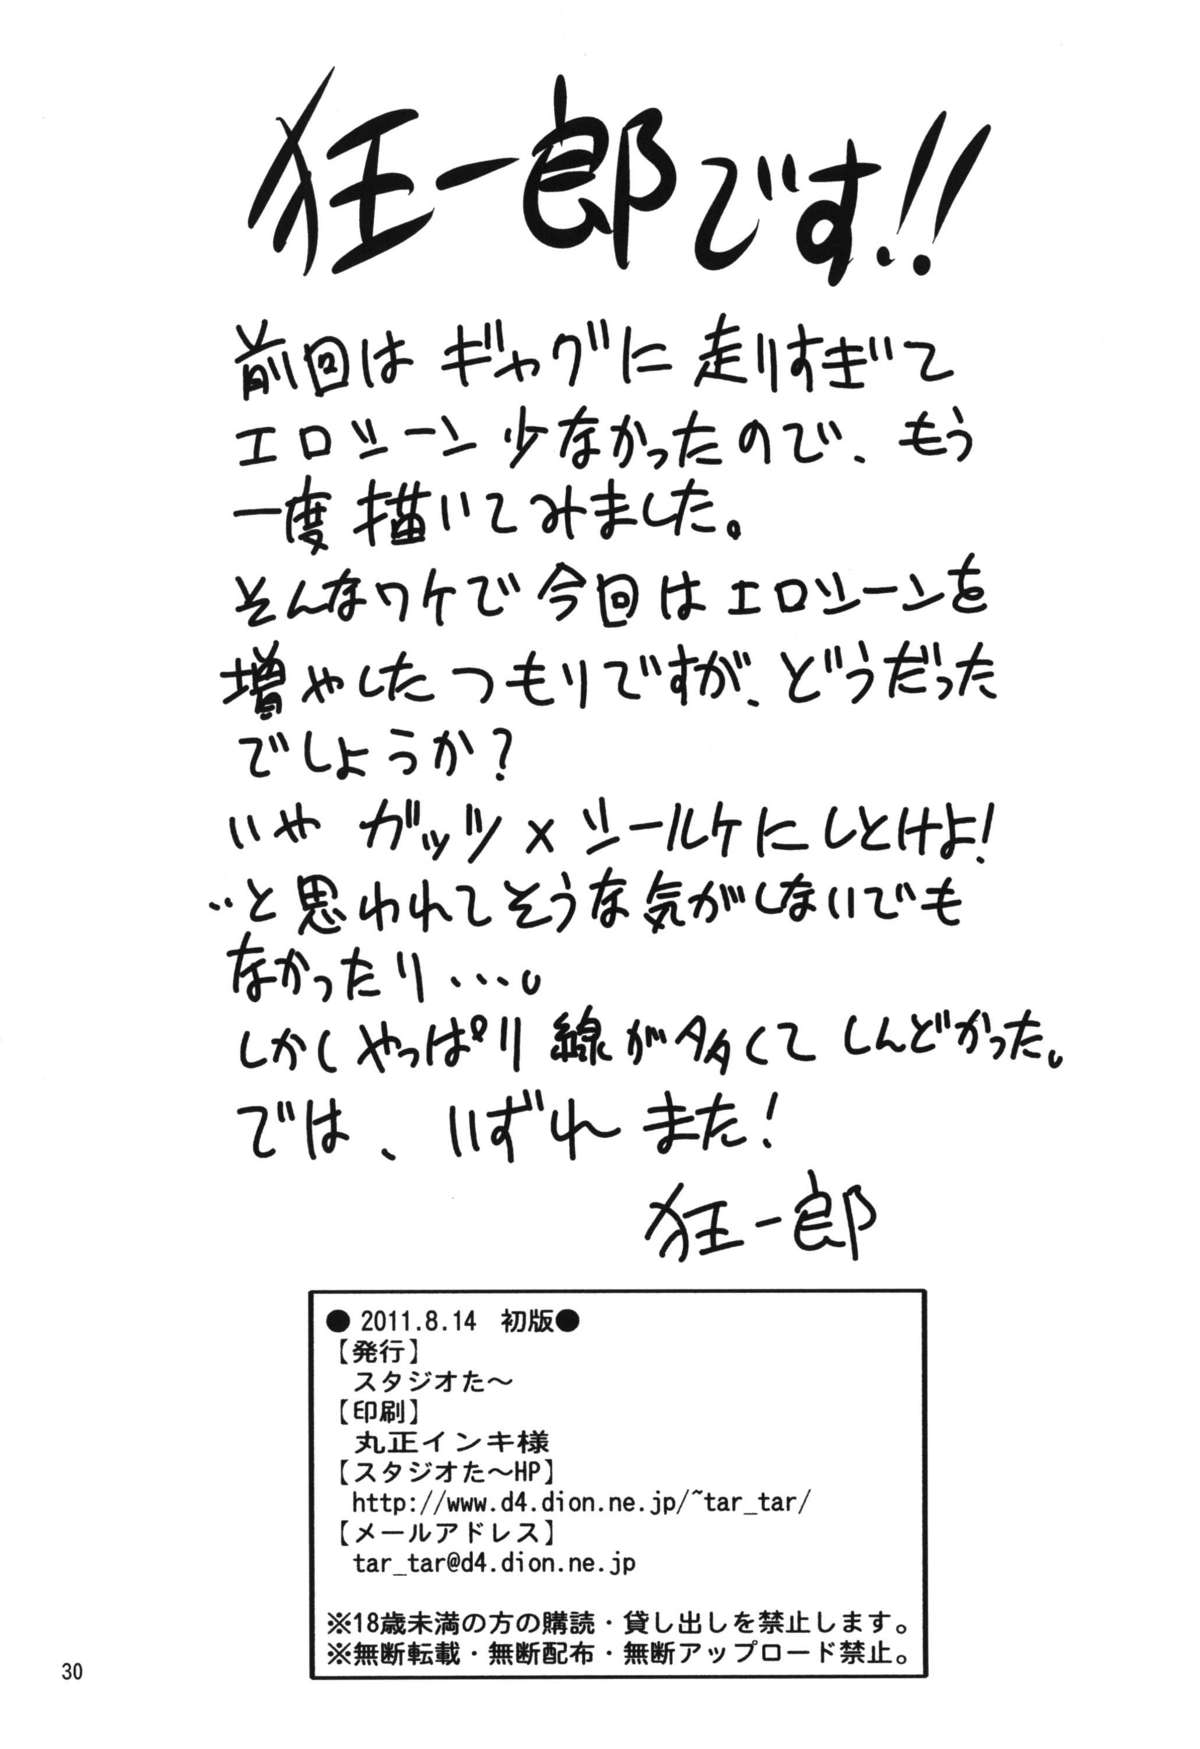 狂一郎です!!
前回は ギャグに 走りすぎて
エロシーン 少なかったので、もう
一度 描いてみました。
そんなワケで 今回は エロシーンを
増やした つもりですが、どうだった
でしょうか?
いや ガッツ×シールケにしとけよ!
‥と 思われてそうな気がしないでも
なかったり…。
しかし やっぱり 線が多くて しんどかった。
では、いずれ また!
狂一郎
● 2011.8.14 初版●
【発行】
スタジオた〜
【印刷】
丸正インキ様
【スタジオた〜HP】
http://www.d4.dion.ne.jp/~tar_tar/
【メールアドレス】
tar_tar@d4.dion.ne.jp
※18歳未満の方の購読・貸し出しを禁止します。
※無断転載・無断配布・無断アップロード禁止。
30